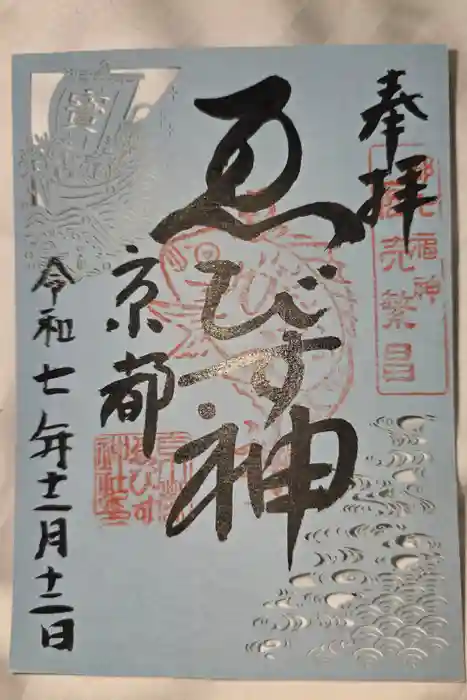 奉拝
都七福神
商売繁昌
ゑびす神
京都
京都
ゑびす
神社
令和七年十二月十二日
寳